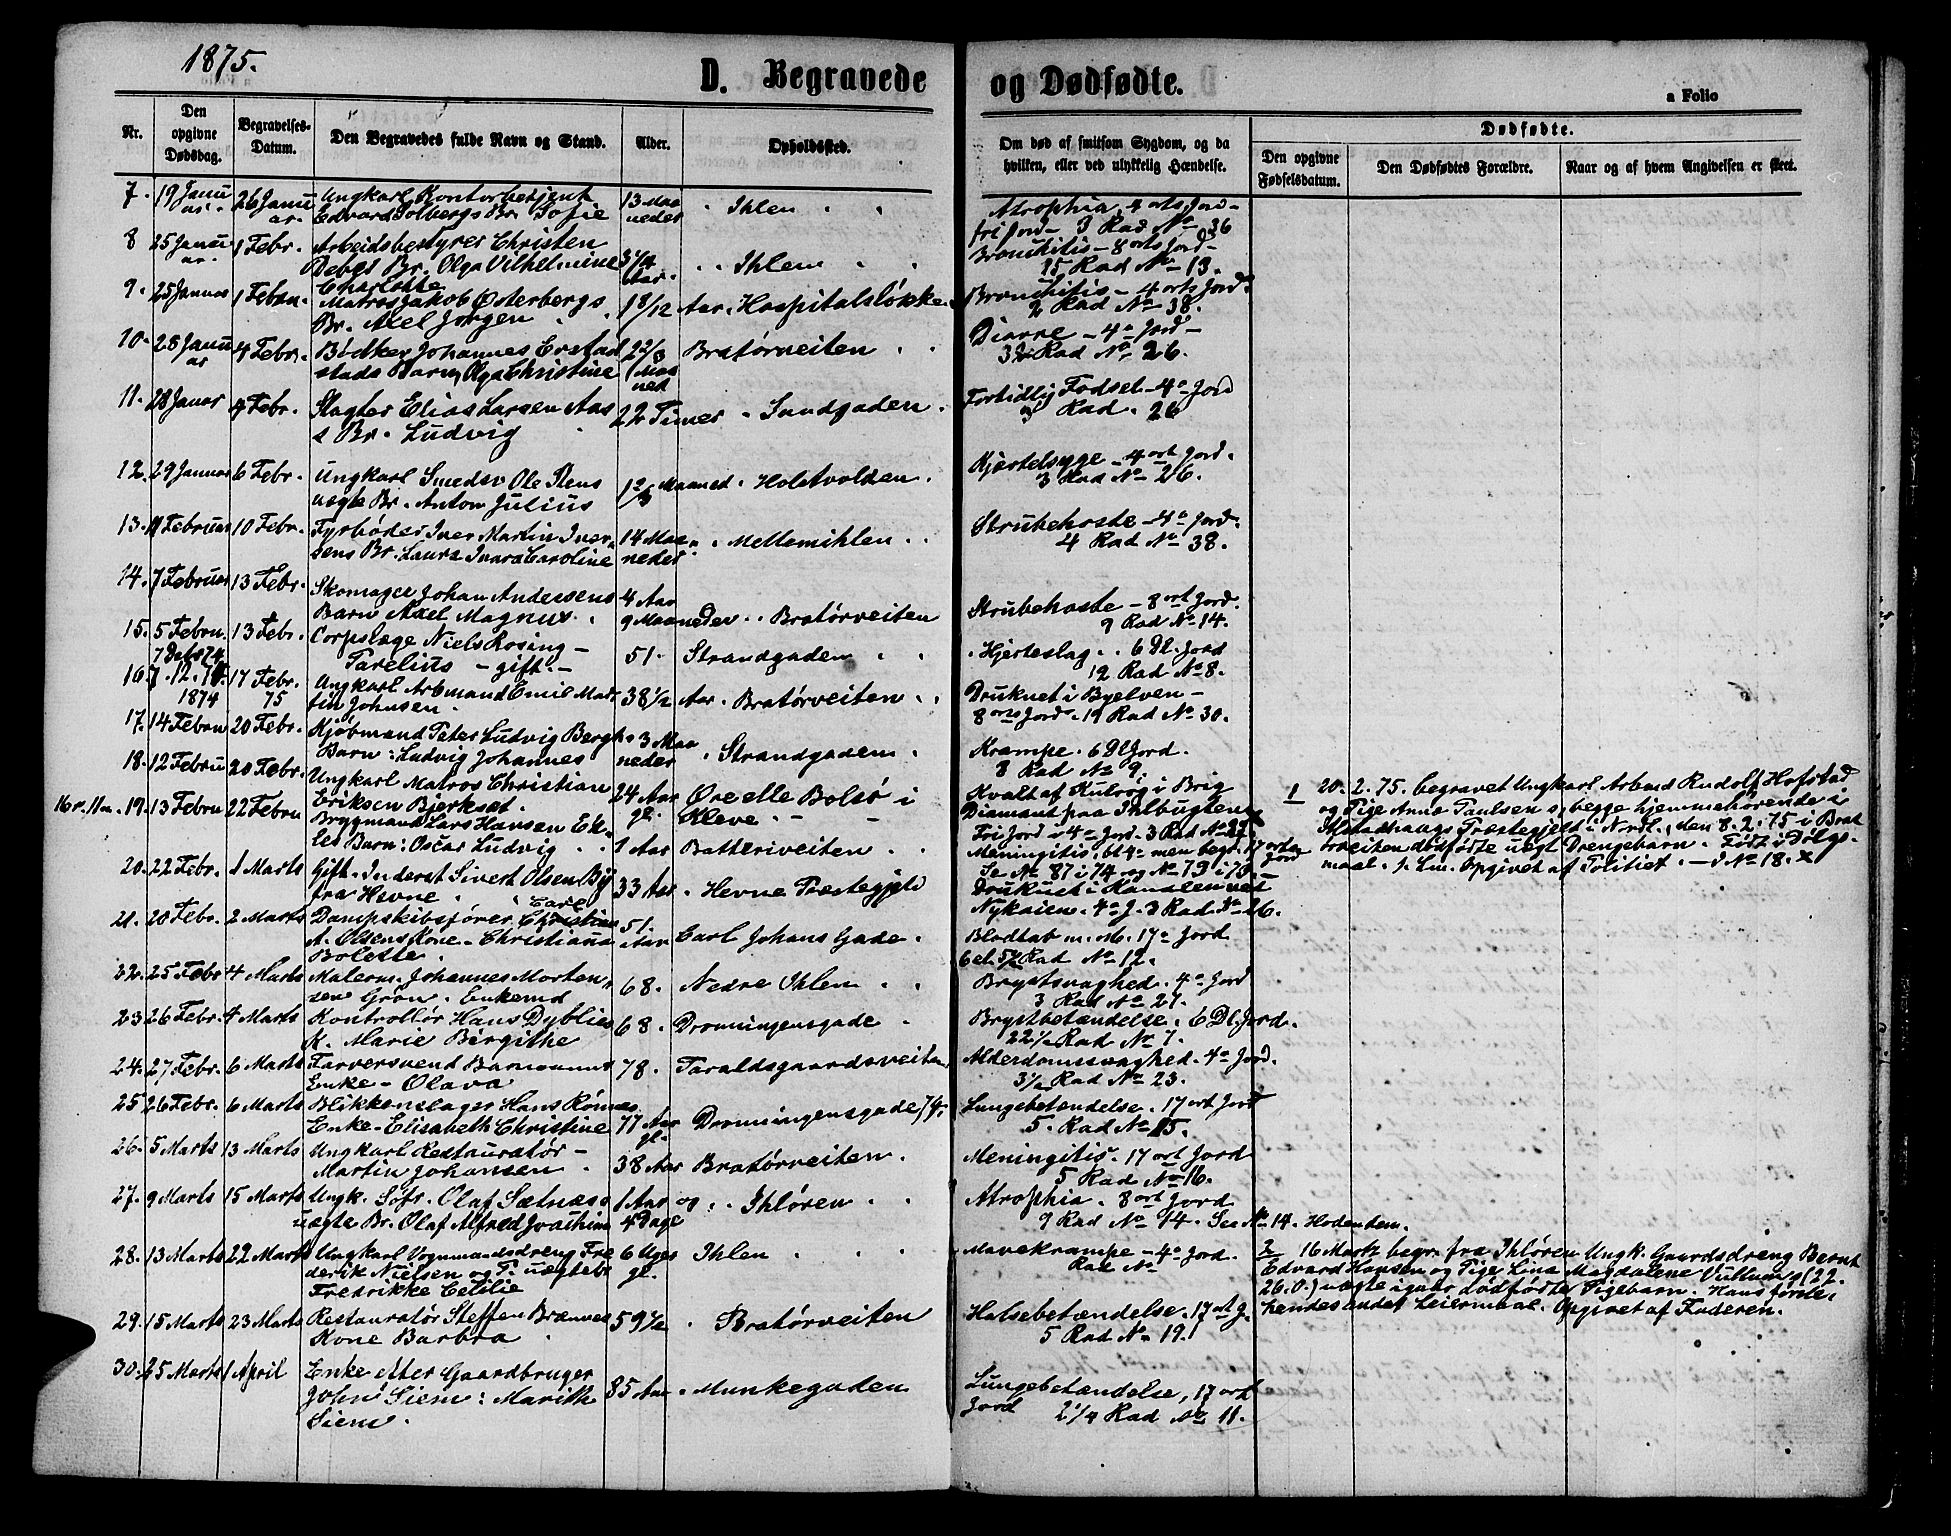 1875.
D. Begravede og Dødfødte.
a Folio
Nr.
Den opgivne Dødsdag.
Begravelses-Datum.
Den Begravedes fulde Navn og Stand.
Alder.
Opholdssted.
Om død af smitsom Sygdom, og da hvilken, eller ved ulykkelig Hændelse.
Dødfødte.
Den opgivne Fødselsdatum.
Den Dødfødtes Forældre.
Naar og af hvem Angivelsen er skeet.
7. 19 Januar. 26 Januar. Ungkarl Kontorbetjent 13 Maaneder Ihlen Atrophia, 4 orts Jord –
Edvard Solbergs Br. Sofie fri Jord – 3 Rad No 36
8 25 Januar. 1 Febr. Arbeidsbestyrer Christen 3 1/4 Aar. Ihlen Bronchitis – 8 orts Jord –
Debes Br. Olga Vilhelmine Charlotte 15 Rad No 13.
9. 25 Januar 1 Febru. Matros Jakob Østerbergs 1 8/12 Aar. Hospitalsløkke Bronchitis – 4 orts Jord.
Br. Axel Jørgen 2 Rad No 38.
10. 28 Januar 4 Febr. Bødker Johannes Erstad 2 2/3 Maaned Bratørveiten Diarre – 4 a Jord –
stads Barn Olga Christine Rad No 26.
11. 28 Januar 4 Febr. Slagter Elias Larsen Aas 22 Timer Sandgaden. Fortidlig Fødsel – 4 a Jord
s Br. Ludvig Rad. 26
12. 29 Januar 6 Febr. Ungkarl Smedsv Ole Stens 1 2/3 Maaned. Holstvolden. Kjertelsyge – 4 ort Jord.
uægte Br. Anton Julius 3 Rad No 26.
13. Februar 10 Febr. Fyrbøder Iver Martin Iversens 14 Maaneder Mellemihlen Strubehoste – 4 a Jord.
Br. Laura Ivara Caroline 4 Rad No 38.
14. 7 Februar 13 Febr. Skomager Johan Andersens 4 Aar Strubehoste – 8 ort Jord.
Barn Axel Magnus. 9 Maaneder. Bratørveiten 9 Rad No 14.
15. 5 Febru 13 Febr. Corpslæge Niels Rosing – 51. Strandgaden Hjerteslag. 6 Dl. Jord
Parelius – gift. – 12 Rad No 8.
16. 7.12.74. 1874 17 Febr. 75 Ungkarl Arbmand Emil Martin Johnsen. 38 1/2 Aar. Bratørveiten Druknet i Byelven –
8 orts Jord. 19 Rad No 30.
17. 14 Febru 20 Febr. Kjøbmand Peter Ludvig Berghs 3 Maaneder Strandgaden. Krampe. 6 Dl Jord.
Barn: Ludvig Johannes 8 Rad No 9.
18. 12 Febru 20 Febr. Ungkarl Matros Christian 24 Aar gl. Øre elle Bolsø i Kleve. Kvalt af Kulrøg i Brig
Eriksen Bjerksæt. Diamand paa Ihlbugten
Fri Jord i 4 a Jord. 3 Rad No 27.
16 v. 11 m. 19. 13 Febru 22 Febru Brygmand Lars Hansen Ekles Barn: Oscar Ludvig 1 Aar Batteriveiten. Meningitis, bl 4 a men begr. 17 orts Jord
Se No 87 i 74 og No 79 i 70.
20. 22 Febr. 1 Marts Gift. Inderst Sivert Olsen By 33 Aar. Hevne Præstegjeld Druknet i Kanalen ved
fra Hevne. Nykaien. 4 a J. 3 Rad. No 26.
21. 20 Febr. 2 Marts Dampskibsfører Carl Christian 51. Aar Carl Johans Gade. Blodtab m. M. 17 a Jord
A. Olsens Kone – Christiana Bolette. Rad No 12.
22. 25 Febr 4 Marts Malerm. Johannes Mortensen 68. Nedre Ihlen Brystsvaghed. 4 a Jord
Grøn. Enkemd 3 Rad No 27.
23 26 Febr. 4 Marts Kontrollør Hans Dyblies 68. Dronningensgade Brystbetændelse. 6 Dl. Jord.
K. Marie Birgithe 22 1/2 Rad No 7.
24. 27 Febr. 6 Marts Farversvend Barmanns 78. Taraldsgaardsveiten Alderdomssvaghed. 4 a Jord.
Enke – Olava 3 1/2 Rad No 23.
25 26 Febr. 6 Marts Blikkenslager Hans Rønnes 77 Aar gl. Dronningensgade 74. Lungebetændelse. 17 ort Jord
Enke – Elisabeth Christine 5. Rad No 15.
26. 5 Marts 13 Marts Ungkarl Restauratør – 38 Aar Bratørveiten. Meningitis. 17 ort Jord
Martin Johansen 5 Rad No 16.
27. 9 Marts 15 Marts Ungk. Søfr. Olaf Sætnæss 1 Aar og 4 Dage Ihløren Atrophia. 8 ort Jord
uægte Br. Olaf Alfred Joachim 9 Rad No 14. Se No 14. Hodendem.
28. 13 Marts 22 Marts Ungkarl Vognmandsdreng Frederik 6 Uger gl. Ihlen Mavekrampe – 4 a Jord.
Nielsen og P. uægtebr Fredrikke Cecilie Rad No
29. 15 Marts 23 Marts Restauratør Steffen Brænnes 59 1/2 Bratørveiten Halsebetændelse. 17 ort J.
Kone Barbra 5 Rad No 19.
30. 25 Marts 1 April Enke efter Gaardbruger 85 Aar Munkegaden Lungebetændelse, 17 ort
John Siem: Marith Siem. Jord 2 1/4 Rad No 11.
1 20. 2. 75. begravet Ungkarl Arbmd Rudolf Hofstad
og Pige Anna Paulsen s, begge hjemmehørende i
Alstadhaugs Præstegjeld i Nordl., den 8. 2. 75 i Brat
ørveiten dødfødte uægt Drengebarn. Født i Dølgs
maal. Opgivet af Politiet. – No 18.
2 16 Marts begr. fra Ihløren Ungk. Gaardsdreng Bernt
Edvard Hansen og Pige Lina Magdalene Vullum s (22.
26. 0.) uægte igaar dødfødte Pigebarn. Hans første,
hendes andet Leiermaal. Opgivet af Faderen.